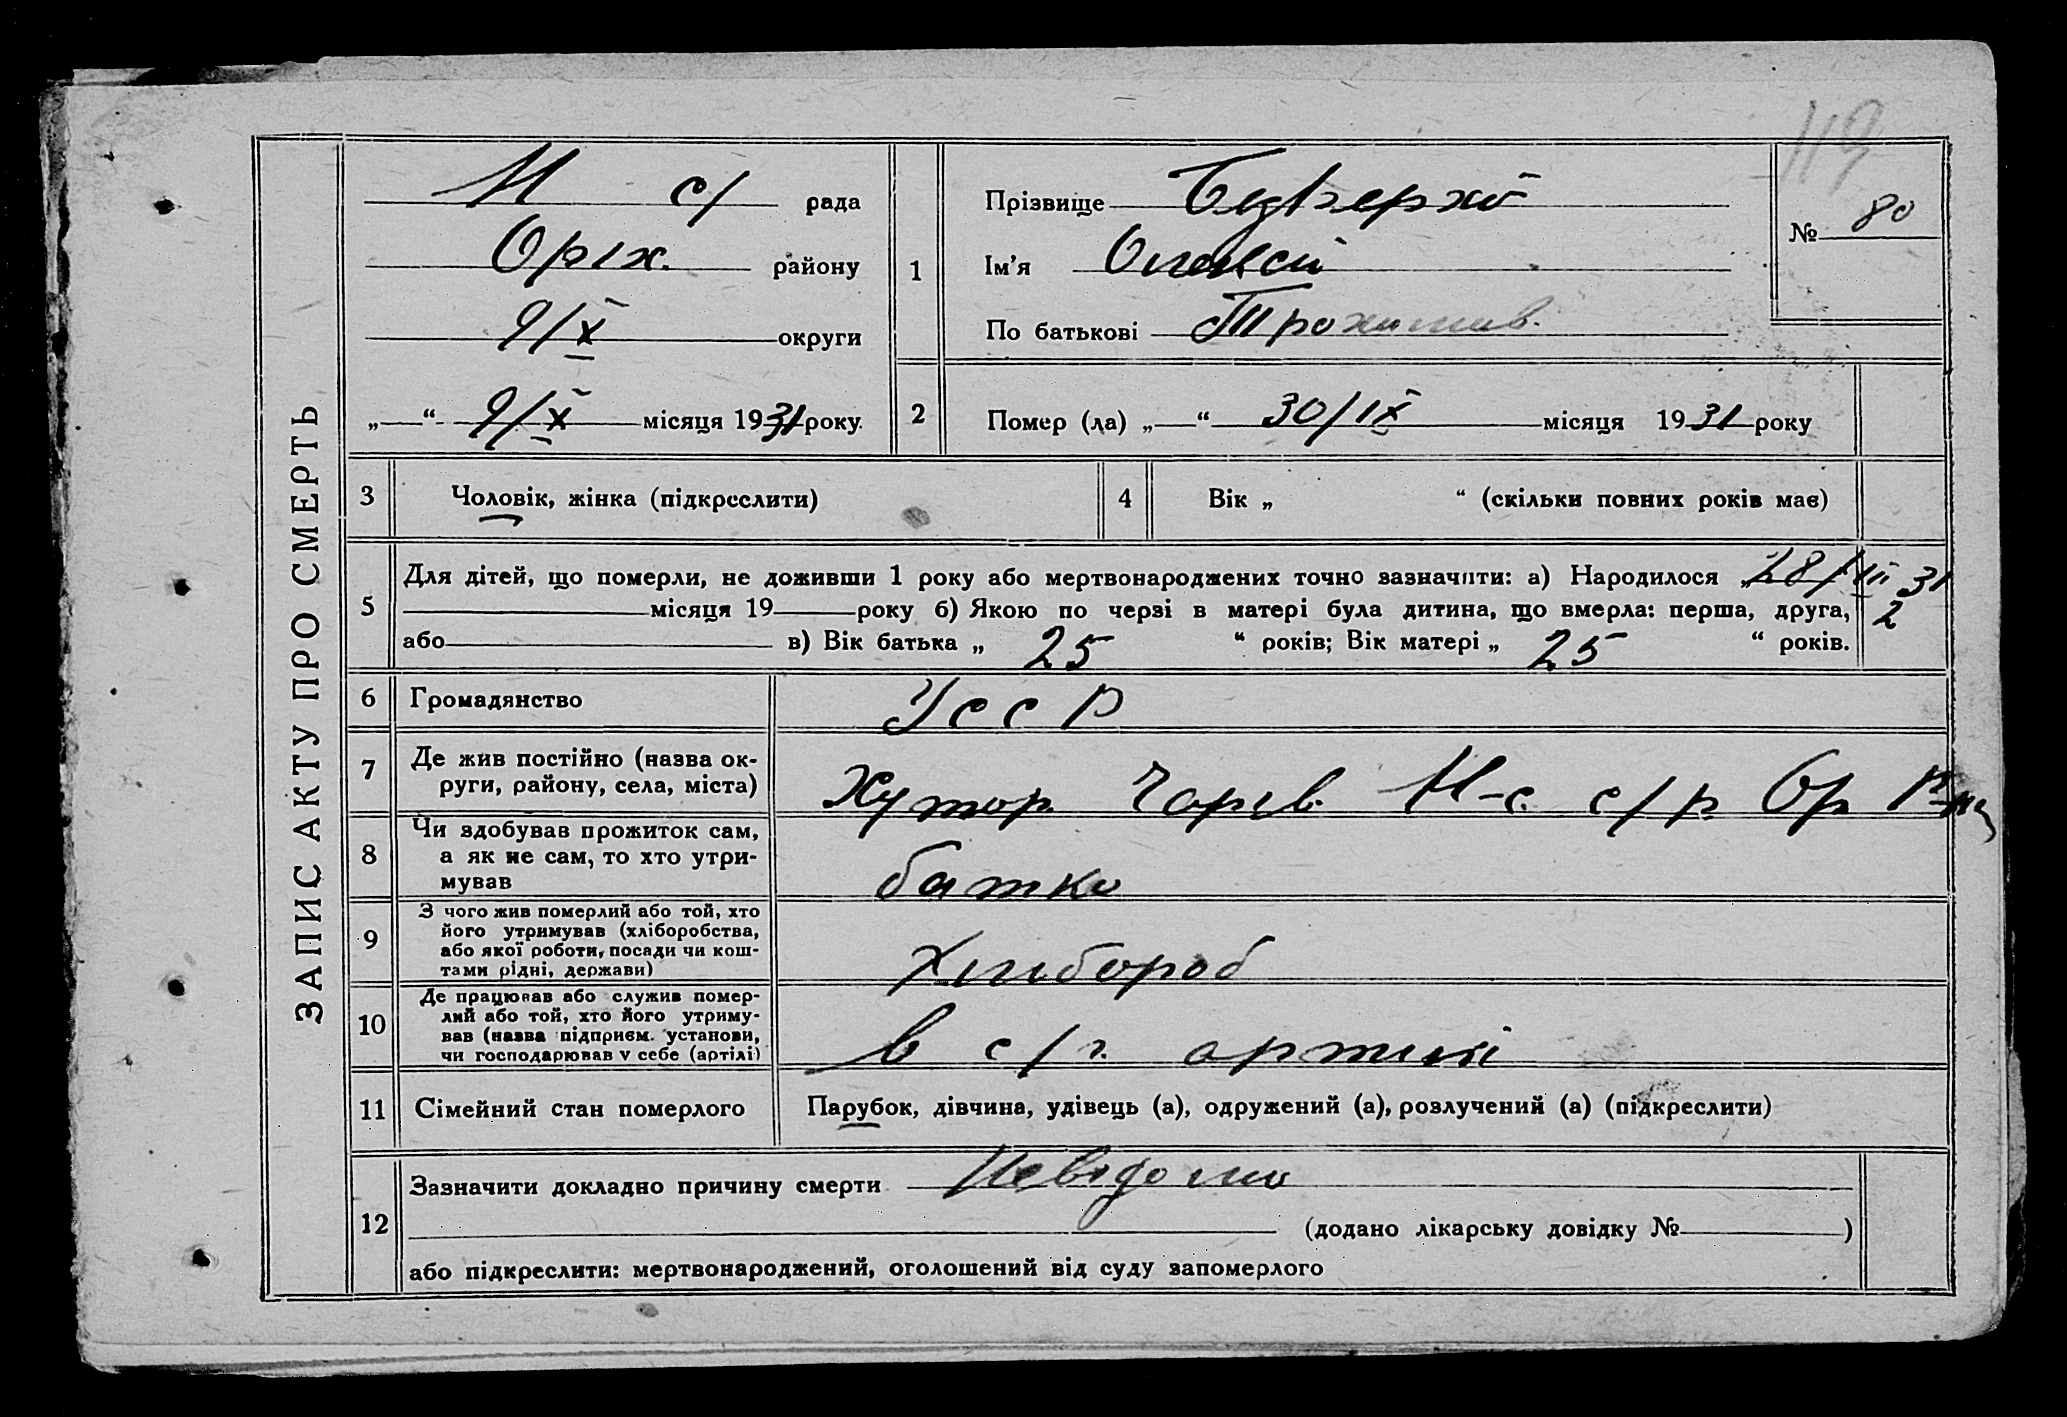 119
ЗАПИС АКТУ ПРО СМЕРТЬ
Н с/ рада
Оріх. району
9/X округи
„ “ 9/X місяця 1931 року.
1
Прізвище
Ім’я Олексій
По батькові Трохимив.
№ 80
2
Помер (ла) „ “ 30/IX місяця 1931 року
3
Чоловік, жінка (підкреслити)
4
Вік „ “ (скільки повних років має)
5
Для дітей, що померли, не доживши 1 року або мертвонароджених точно зазначити: а) Народилося „ 28/III 31
місяця 19 року б) Якою по черзі в матері була дитина, що вмерла: перша, друга, 2
або в) Вік батька „ 25 “ років; Вік матері „ 25 “ років.
6
Громадянство
УССР
7
Де жив постійно (назва ок-
руги, району, села, міста)
Хутор Н-с. с/р. Ор. Р-ну
8
Чи здобував прожиток сам,
а як не сам, то хто утри-
мував
батко
9
З чого жив померлий або той, хто
його утримував (хліборобства,
або якої роботи, посади чи кош-
тами рідні, держави)
Хлибороб
10
Де працював або служив помер-
лий або той, хто його утриму-
вав (назва підприєм. установи,
чи господарював у себе (артілі)
в с/г. артилі
11
Сімейний стан померлого
Парубок, дівчина, удівець (а), одружений (а), розлучений (а) (підкреслити)
12
Зазначити докладно причину смерти Невідомо
(додано лікарську довідку № )
або підкреслити: мертвонароджений, оголошений від суду запомерлого